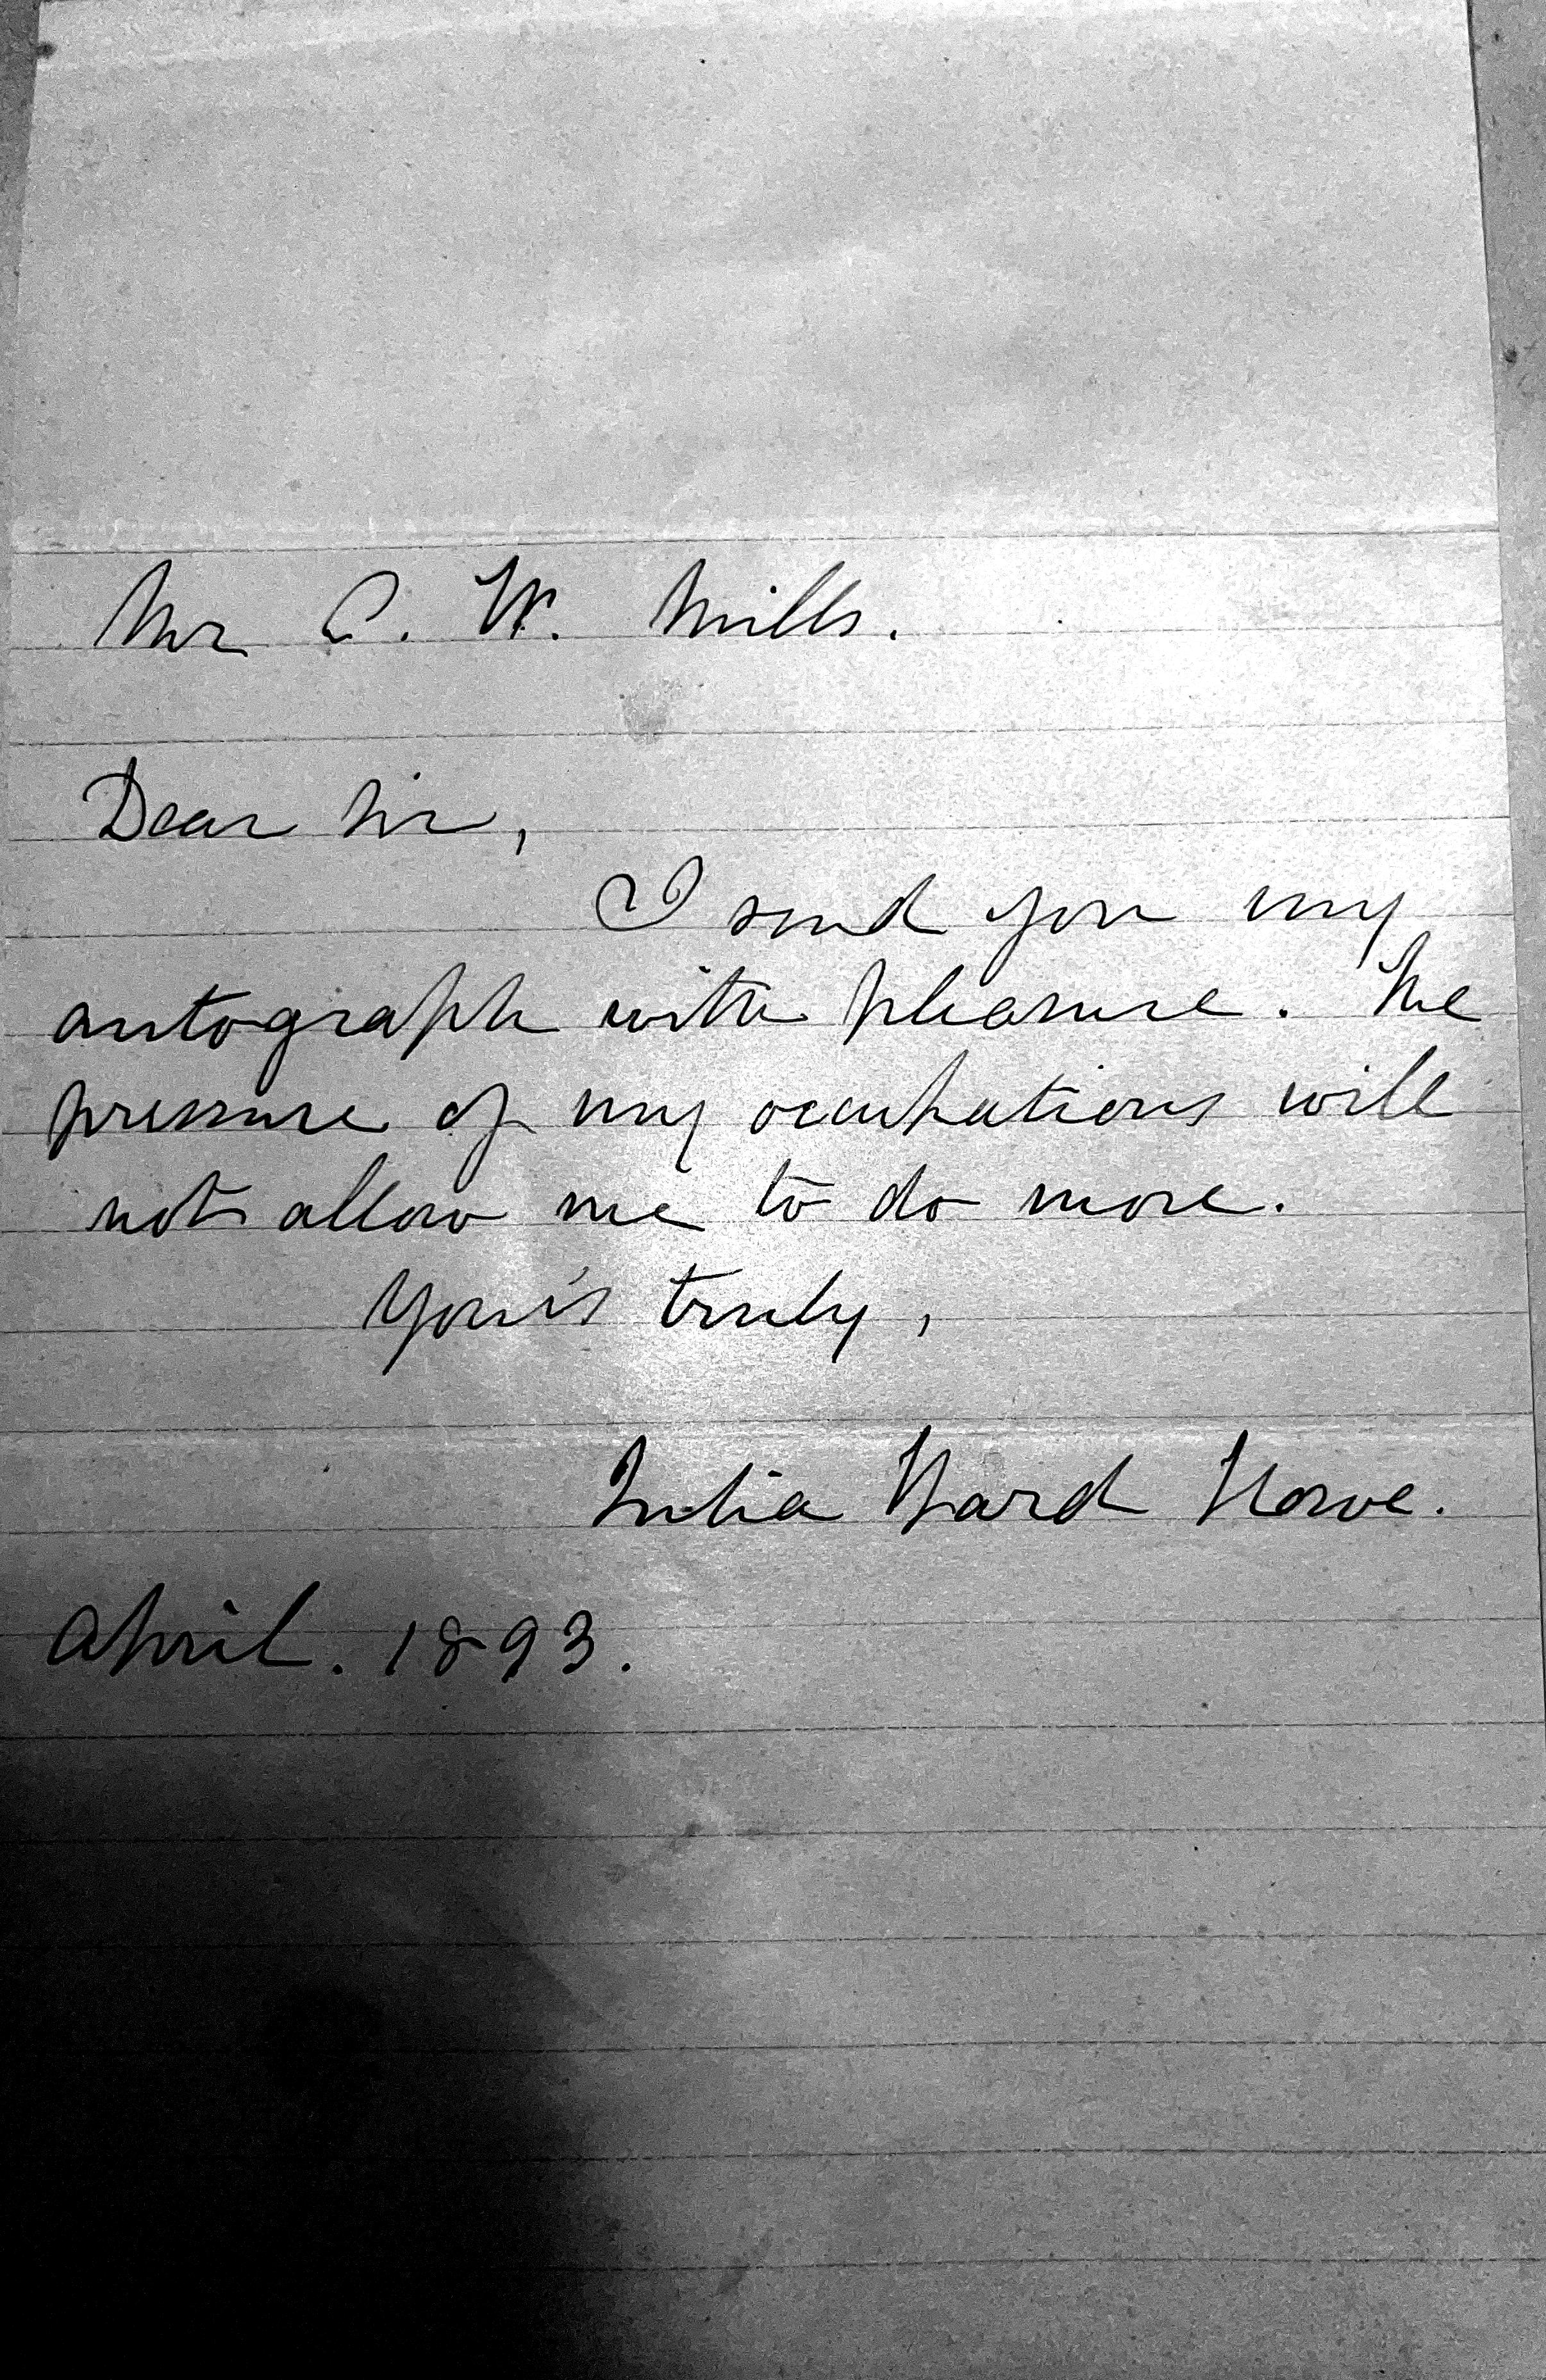 Mr C. W. Mills.
Dear Sir,
I send you my
autograph with pleasure. The
pressure of my occupations will
not allow me to do more.
Your's truly,
Julia Ward Howe.
April. 1893.